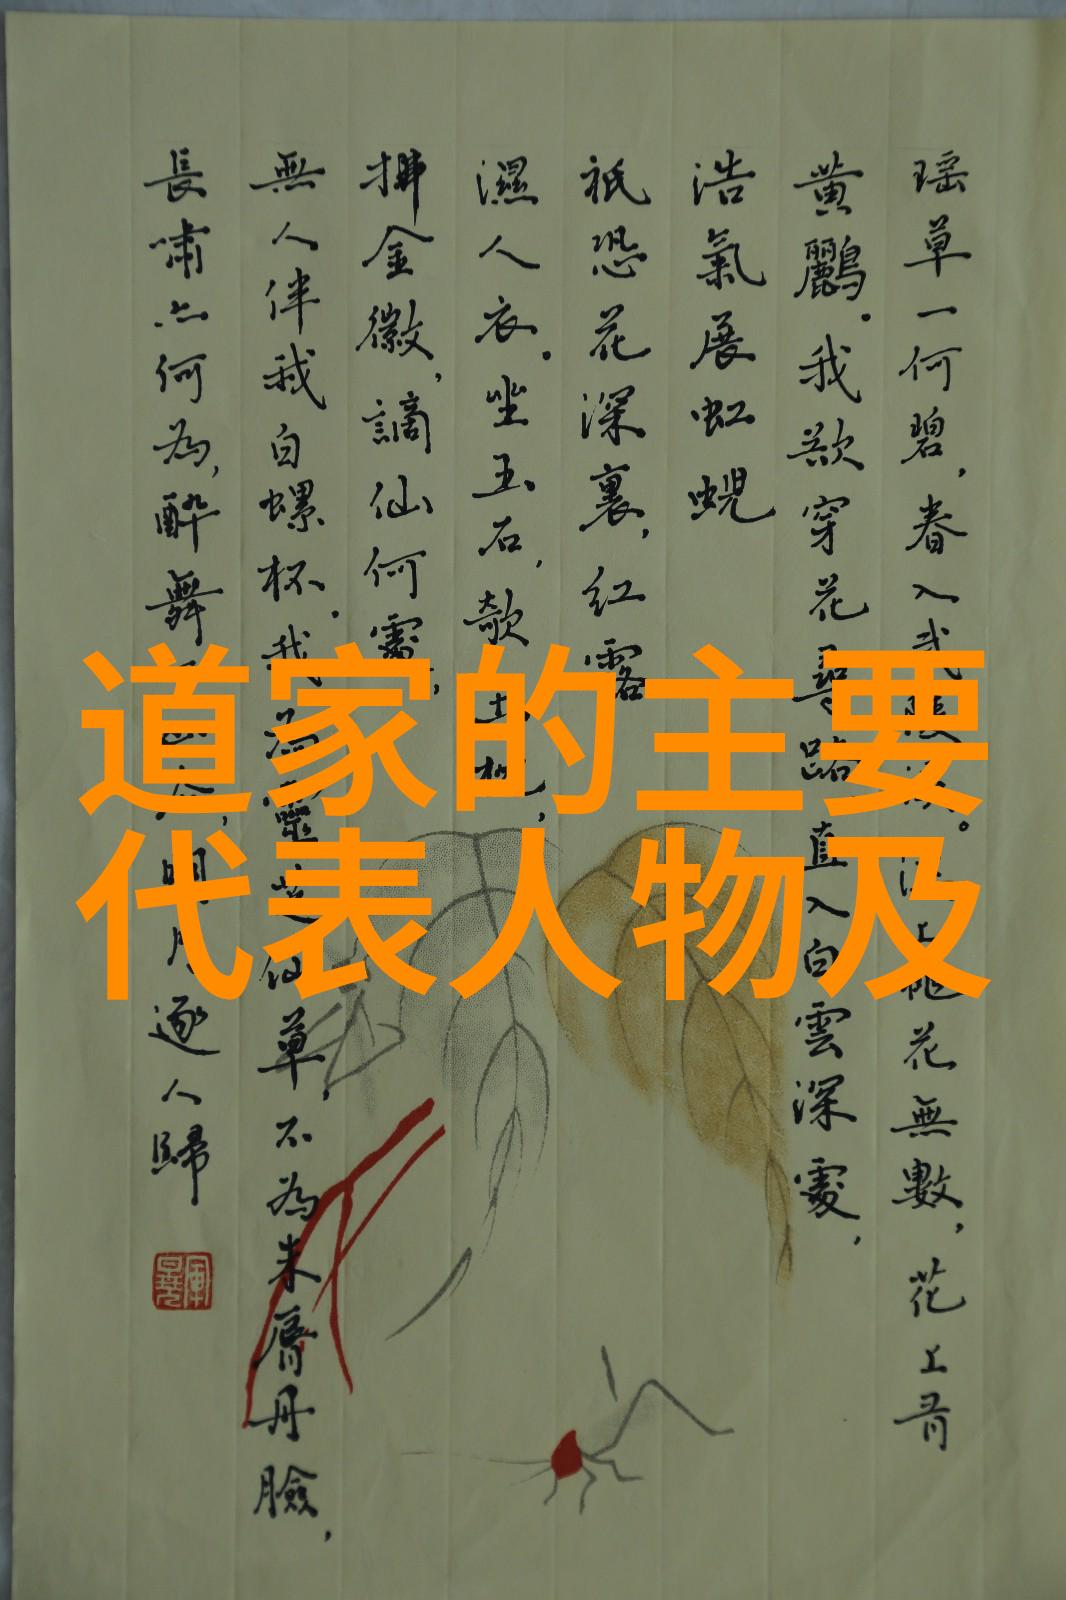 道家的主要
代表人物及
瑶草一何碧，春入武陵溪。溪上桃花無數，花上有
黄鸝。我欲穿花尋路，直入白雲深處，
浩氣展虹蜺
祇恐花深裏，紅露
濕人衣。坐玉石，欹玉枕，
拂金徽，謫仙何處，
無人伴我白螺杯。我為靈芝仙草，不為朱唇丹臉，
長嘯亦何為，醉舞下山去，明月逐人歸